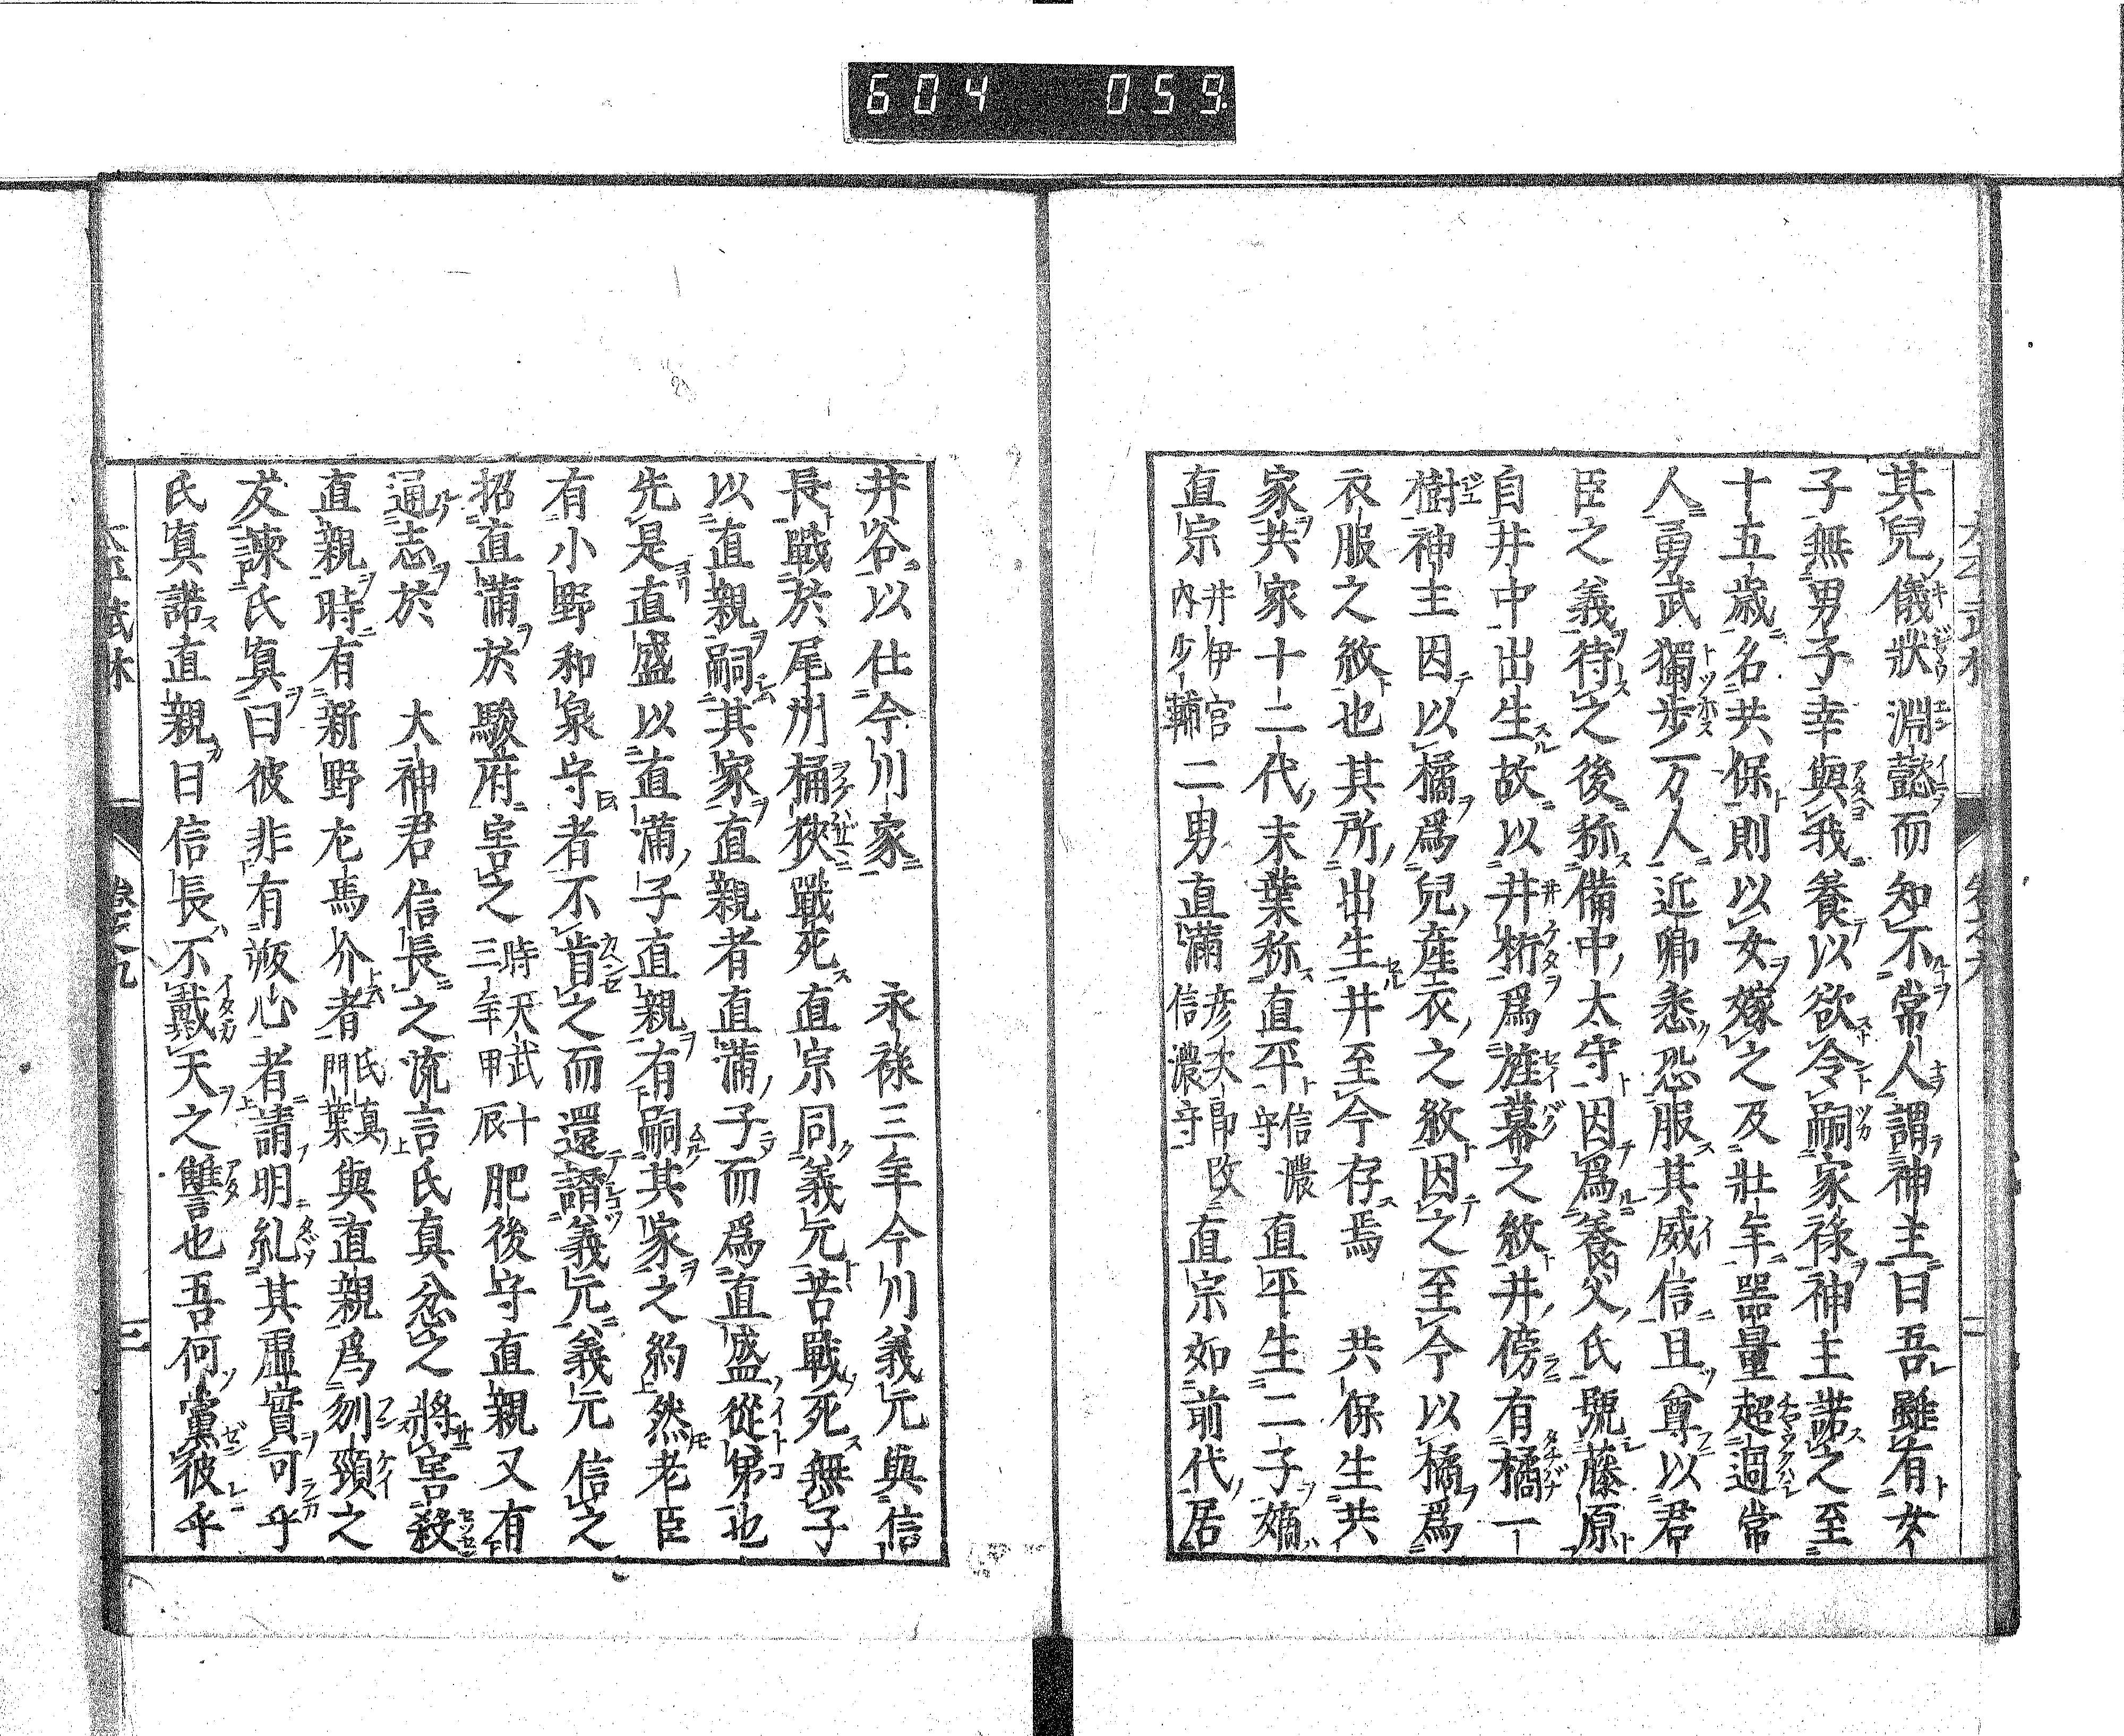 604 059
其兒儀狀淵懿而知不常人謂神主曰吾雖有女
子無男子幸與我養以欲令嗣家祿神主諾之至
十五歲名共保則以女嫁之及壯年器量超過常
人勇武獨步万人近鄉悉恐服其威信且尊以君
臣之義待之後称備中太守因爲養父氏號藤原
自井中出生故以井桁爲旌幕之紋井傍有橘一
樹神主因以橘爲兒産衣之紋因之至今以橘爲
衣服之紋也其所出生井至今存焉 共保生共
家共家十二代末葉称直平信濃守直平生二子嫡
直宗井伊宮内少輔二男直滿彦次郎改信濃守直宗如前代居
井谷以仕今川家 永祿三年今川義元與信
長戰於尾州桶狹戰死直宗同義元苦戰死無子
以直親嗣其家直親者直滿子而爲直盛從弟也
先是直盛以直滿子直親有嗣其家之約然老臣
有小野和泉守者不肯之而還譖義元義元信之
招直滿於駿府害之時天武十三年甲辰肥後守直親又有
通志於 大神君信長之流言氏真忿之將害殺
直親時有新野左馬介者氏真門葉與直親爲刎頸之
友諫氏真曰彼非有叛心者請明糺其虛實可乎
氏真諾直親曰信長不戴天之讐也吾何黨彼乎
三